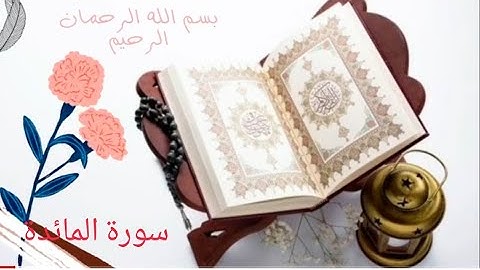 بسم الله الرحمان
الرحيم
سورة المائدة